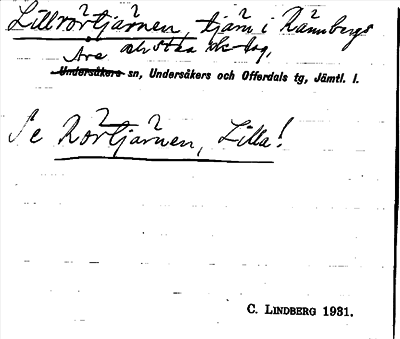 Lillrörtjärnen, tjärn i Rännbergs
Åre
Undersåkers sn, Undersåkers och Offerdals tg, Jämtl. l.
Se Rörtjärnen, Lilla!
C. LINDBERG 1931.